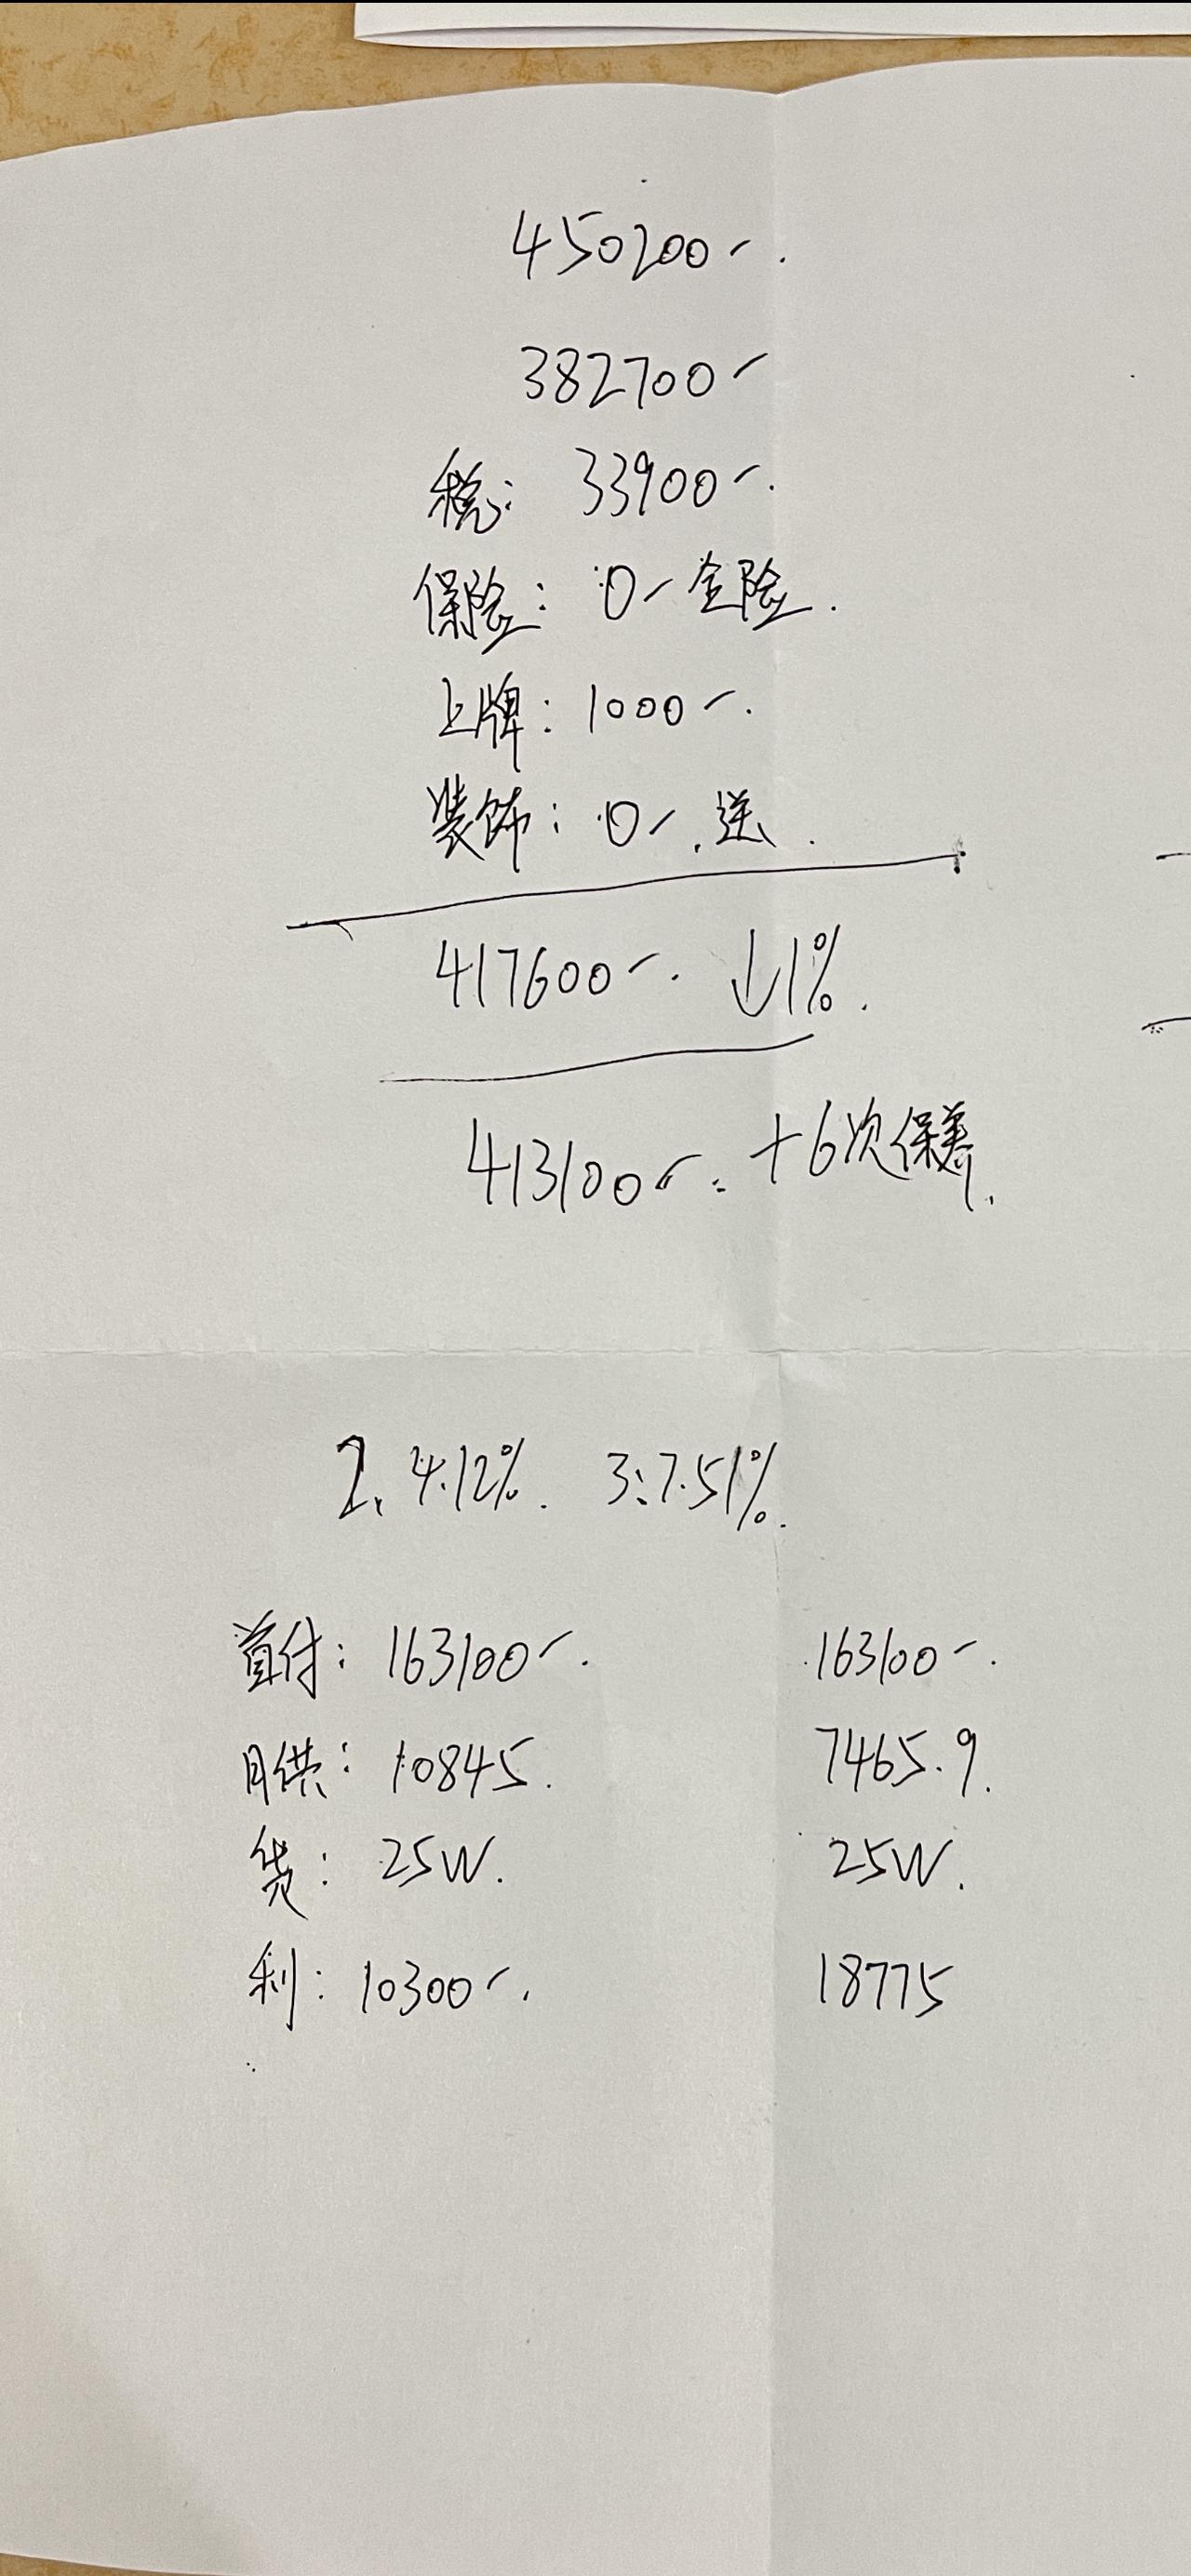 450200-.
382700-
税: 33900-.
保险: 0-全险.
上牌: 1000-.
装饰: 0-.送.
417600-. ↓1%.
413100-. +6次保养.
2. 4.12%. 3:7.51%.
首付: 163100-. 163100-.
月供: 10845. 7465.9.
贷: 25W. 25W.
利: 10300-. 18775